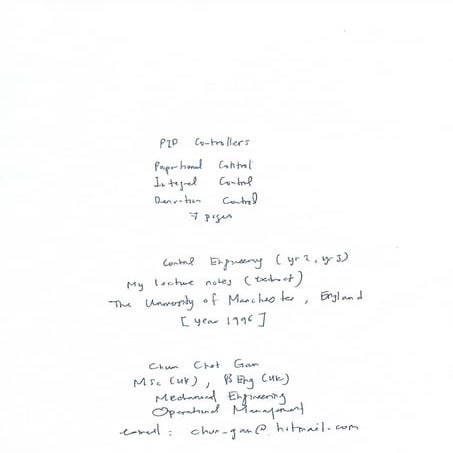 PID Controllers
Proportional Control
Integral Control
Derivation Control
7 pages
Control Engineering (yr 2, yr 3)
My lecture notes (extract)
The University of Manchester, England
[year 1996]
Chun Chet Gan
MSc (UK), BEng (UK)
Mechanical Engineering
Operational Management
email: chun_gan@hotmail.com